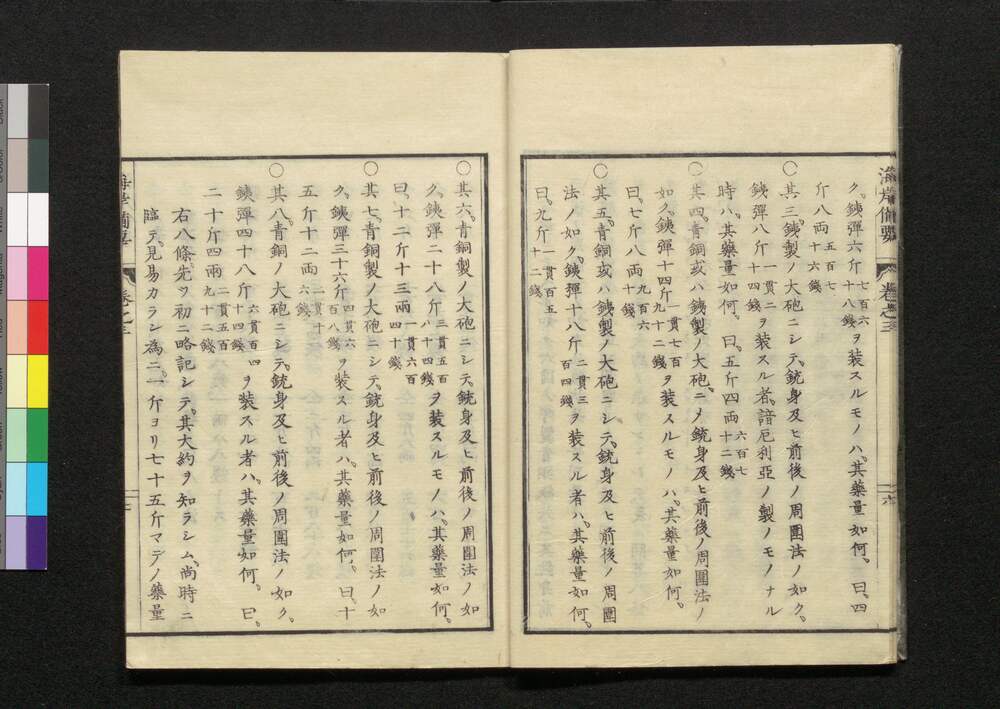 海岸備要　卷之三　六
ク。銕彈六斤七百六十八錢ヲ装スルモノハ。其藥量如何。曰。四
斤八両五百七十六錢
〇其三。銕製ノ大砲ニシテ。銃身及ヒ前後ノ周圍法ノ如ク。
銕彈八斤一貫二十四錢ヲ装スル者。諳厄利亞ノ製ノモノナル
時ハ。其藥量如何。曰。五斤四両六百七十二錢
〇其四。青銅或ハ銕製ノ大砲。ニメ銃身及ヒ前後ノ周圍法ノ
如ク。銕彈十四斤一貫七百九十二錢ヲ装スルモノハ。其藥量如何。
曰。七斤八両九百六十錢
〇其五。青銅或ハ銕製ノ大砲ニシテ。銃身及ヒ前後ノ周圍
法ノ如ク。銕彈十八斤二貫三百四錢ヲ装スル者ハ。其藥量如何。
曰。九斤一貫百五十二錢
〇其六。青銅製ノ大砲ニシテ。銃身及ヒ前後ノ周圍法ノ如
ク。銕彈二十八斤三貫五百八十四錢ヲ装スルモノハ。其藥量如何。
曰。十二斤十三両一貫六百四十錢
〇其七。青銅製ノ大砲ニシテ。銃身及ヒ前後ノ周圍法ノ如
ク。銕彈三十六斤四貫六百八錢ヲ装スル者ハ。其藥量如何。曰。十
五斤十二両二貫十六錢
〇其八。青銅ノ大砲ニシテ。銃身及ヒ前後ノ周圍法ノ如ク。
銕彈四十八斤六貫百四十四錢ヲ装スル者ハ。其藥量如何。曰。
二十斤四両二貫五百九十二錢
右八條。先ヲ初ニ略記シテ。其大約ヲ知ラシム。尚時ニ
臨テ。見易カラン為ニ。一斤ヨリ七十五斤マデノ藥量